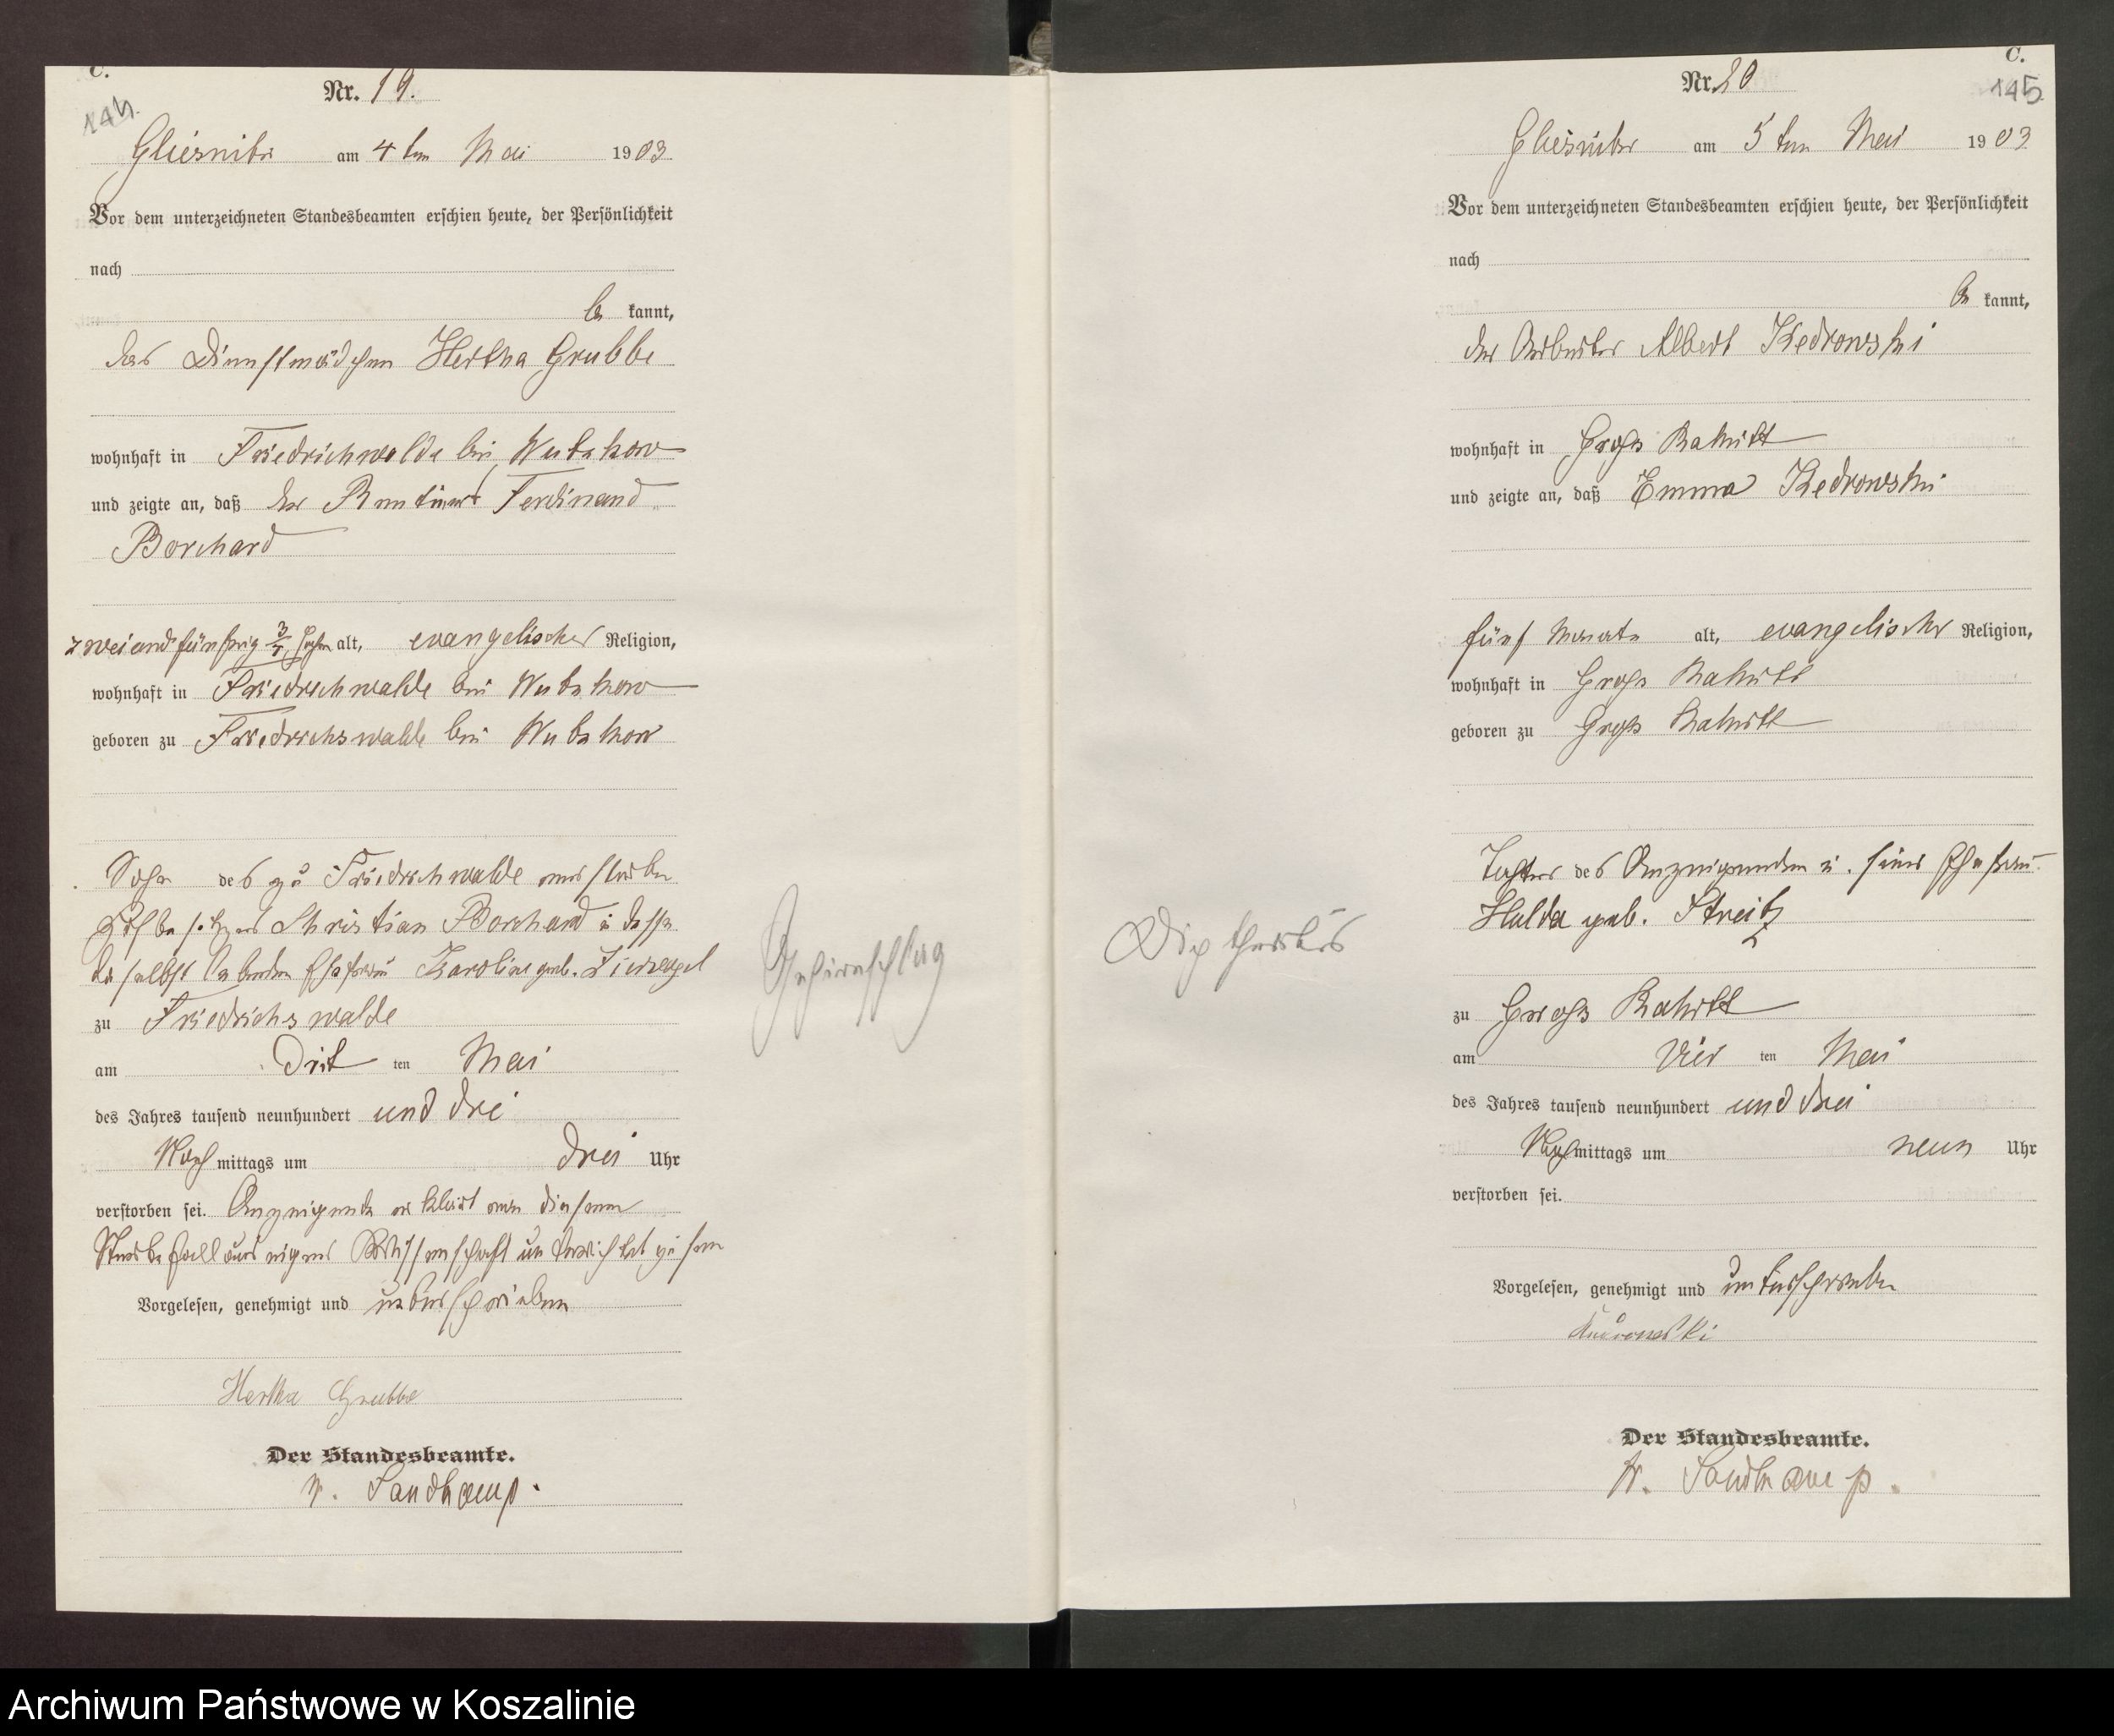 C.
144.
Nr. 19.
Gliesnitz am 4ten Mai 1903.
Vor dem unterzeichneten Standesbeamten erschien heute, der Persönlichkeit
nach
be kannt,
das Dienstmädchen Hertha Grubbe
wohnhaft in Friedrichwalde bei Wutzkow
und zeigte an, daß der Rentier Ferdinand
Borchard
zweiundfünfzig 3/4 Jahre alt, evangelischer Religion,
wohnhaft in Friedrichwalde bei Wutzkow
geboren zu Friedrichswalde bei Wutzkow
Sohn des zu Friedrichwalde verstorben
Hofbesitzers Christian Borchard u dessen
daselbst lebenden Ehefrau Karoline geb.
zu Friedrichswalde
am Drit ten Mai
des Jahres tausend neunhundert und drei
Nach mittags um drei Uhr
verstorben sei. Anzeigende erklärt von diesem
Sterbefall aus eigner Wissenschaft unterrichtet zu sein
Vorgelesen, genehmigt und unterschrieben
Hertha Grubbe
Der Standesbeamte.
Sandkamp.
Gehirnschlag
C.
145
Nr. 20
Gliesnitz am 5ten Mai 1903
Vor dem unterzeichneten Standesbeamten erschien heute, der Persönlichkeit
nach
be kannt,
der Arbeiter Albert Kedrowski
wohnhaft in Groß Rakitt
und zeigte an, daß Emma Kedrowski
fünf Monate alt, evangelischer Religion,
wohnhaft in Groß Rakitt
geboren zu Groß Rakitt
Tochter des Anzeigenden u. seiner Ehefrau
Hulda geb. Streitz
zu Groß Rakitt
am Vier ten Mai
des Jahres tausend neunhundert und drei
Nachmittags um neun Uhr
verstorben sei.
Vorgelesen, genehmigt und unterschrieben
Kedrowski
Der Standesbeamte.
Sandkamp.
Diptheritis
Archiwum Państwowe w Koszalinie